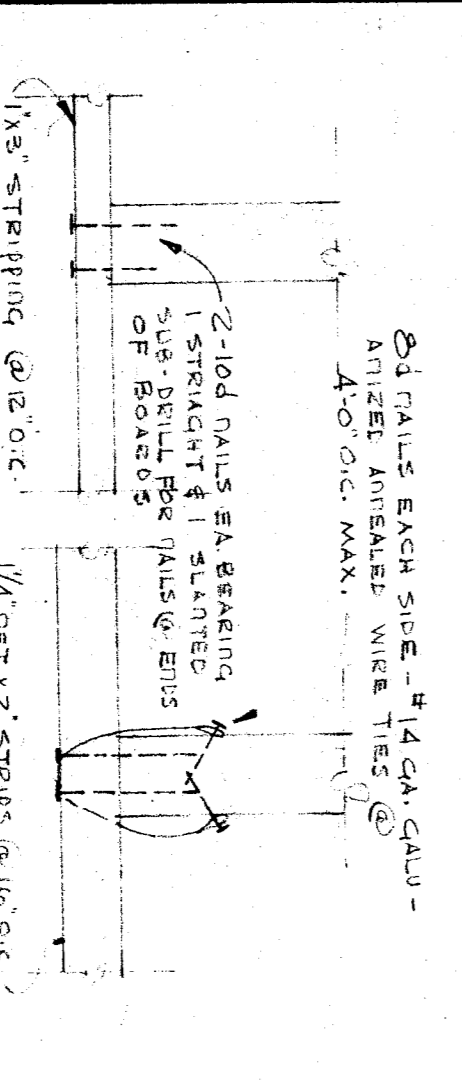 8d NAILS EACH SIDE - #14 GA. GALV-
ANIZED ANNEALED WIRE TIES @
4'-0" O.C. MAX.
2-10d NAILS EA. BEARING
1 STRIAGHT & 1 SLANTED
SUB-DRILL FOR NAILS @ ENDS
OF BOARDS
1"X3" STRIPPING @ 12" O.C.
1 1/4" NET X 2" STRIPS @ 16" O.C.